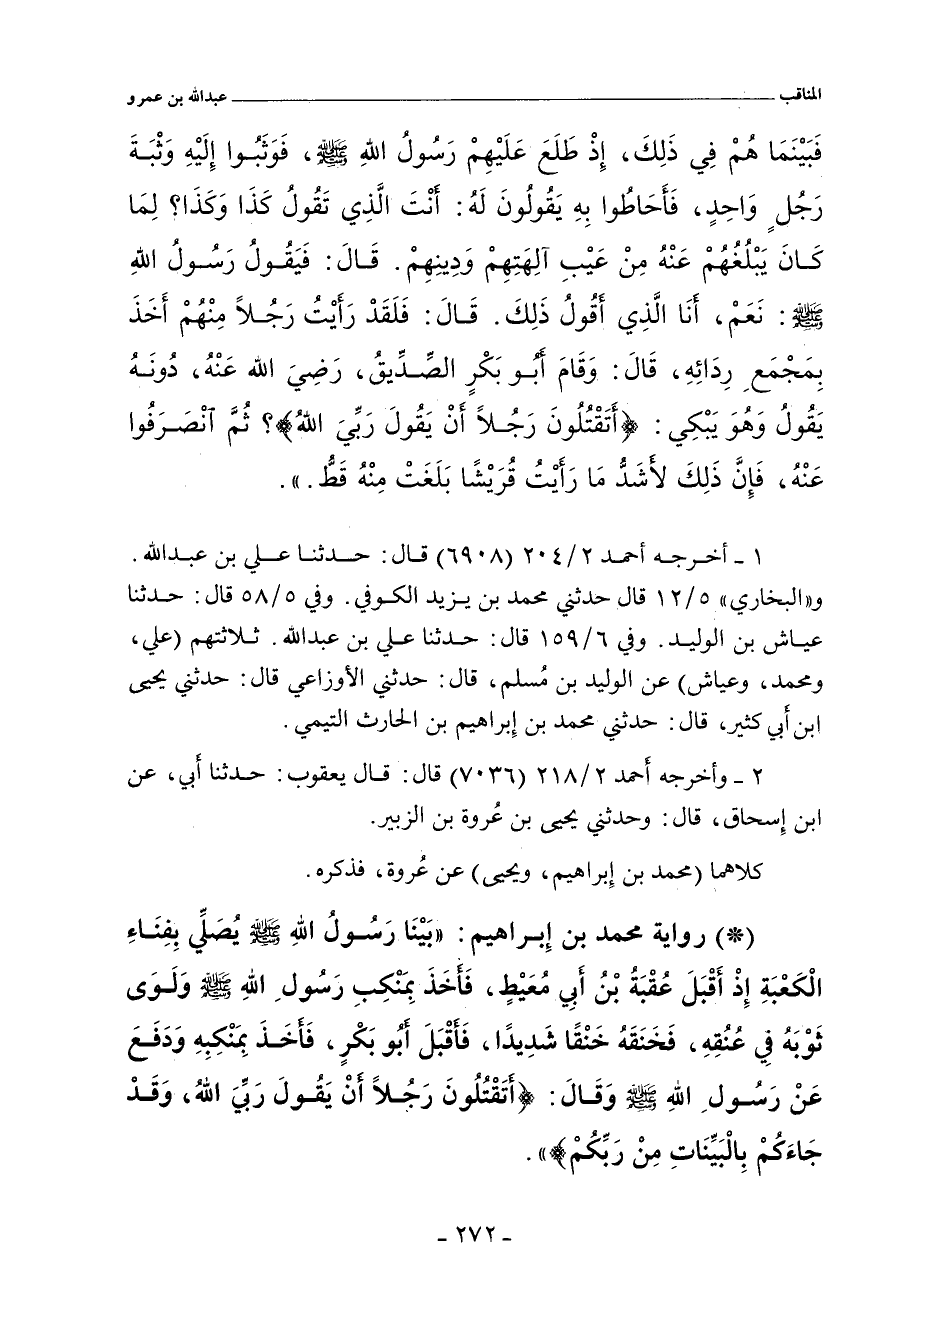 المناقب ــــــــــــ عبدالله بن عمرو
فَبَيْنَمَا هُمْ فِي ذَلِكَ، إِذْ طَلَعَ عَلَيْهِمْ رَسُولُ اللهِ ﷺ، فَوَثَبُوا إِلَيْهِ وَثْبَةَ
رَجُلٍ وَاحِدٍ، فَأَحَاطُوا بِهِ يَقُولُونَ لَهُ: أَنْتَ الَّذِي تَقُولُ كَذَا وَكَذَا؟ لِمَا
كَانَ يَبْلُغُهُمْ عَنْهُ مِنْ عَيْبِ آلِهَتِهِمْ وَدِينِهِمْ. قَالَ: فَيَقُولُ رَسُولُ اللهِ
ﷺ: نَعَمْ، أَنَا الَّذِي أَقُولُ ذَلِكَ. قَالَ: فَلَقَدْ رَأَيْتُ رَجُلاً مِنْهُمْ أَخَذَ
بِمَجْمَعِ رِدَائِهِ، قَالَ: وَقَامَ أَبُو بَكْرٍ الصِّدِّيقُ، رَضِيَ الله عَنْهُ، دُونَهُ
يَقُولُ وَهُوَ يَبْكِي: ﴿أَتَقْتُلُونَ رَجُلاً أَنْ يَقُولَ رَبِّيَ اللهُ﴾؟ ثُمَّ آنْصَرَفُوا
عَنْهُ، فَإِنَّ ذَلِكَ لأَشَدُّ مَا رَأَيْتُ قُرَيْشًا بَلَغَتْ مِنْهُ قَطُّ.».
١ - أخرجه أحمد ٢/٢٠٤ (٦٩٠٨) قال: حدثنا علي بن عبدالله.
و«البخاري» ٥/١٢ قال حدثني محمد بن يزيد الكوفي. وفي ٥/٥٨ قال: حدثنا
عياش بن الوليد. وفي ٦/١٥٩ قال: حدثنا علي بن عبدالله. ثلاثتهم (علي،
ومحمد، وعياش) عن الوليد بن مُسلم، قال: حدثني الأوزاعي قال: حدثني يحيى
ابن أبي كثير، قال: حدثني محمد بن إبراهيم بن الحارث التيمي.
٢ - وأخرجه أحمد ٢/٢١٨ (٧٠٣٦) قال: قال يعقوب: حدثنا أبي، عن
ابن إسحاق، قال: وحدثني يحيى بن عُروة بن الزبير.
كلاهما (محمد بن إبراهيم، ويحيى) عن عُروة، فذكره.
(*) رواية محمد بن إبراهيم: «بَيْنَا رَسُولُ اللهِ ﷺ يُصَلِّي بِفِنَاءِ
الْكَعْبَةِ إِذْ أَقْبَلَ عُقْبَةُ بْنُ أَبِي مُعَيْطٍ، فَأَخَذَ بِمَنْكِبِ رَسُولِ اللهِ ﷺ وَلَوَى
ثَوْبَهُ فِي عُنُقِهِ، فَخَنَقَهُ خَنْقًا شَدِيدًا، فَأَقْبَلَ أَبُو بَكْرٍ، فَأَخَذَ بِمَنْكِبِهِ وَدَفَعَ
عَنْ رَسُولِ اللهِ ﷺ وَقَالَ: ﴿أَتَقْتُلُونَ رَجُلاً أَنْ يَقُولَ رَبِّيَ اللهُ، وَقَدْ
جَاءَكُمْ بِالْبَيِّنَاتِ مِنْ رَبِّكُمْ﴾».
- ٢٧٢ -